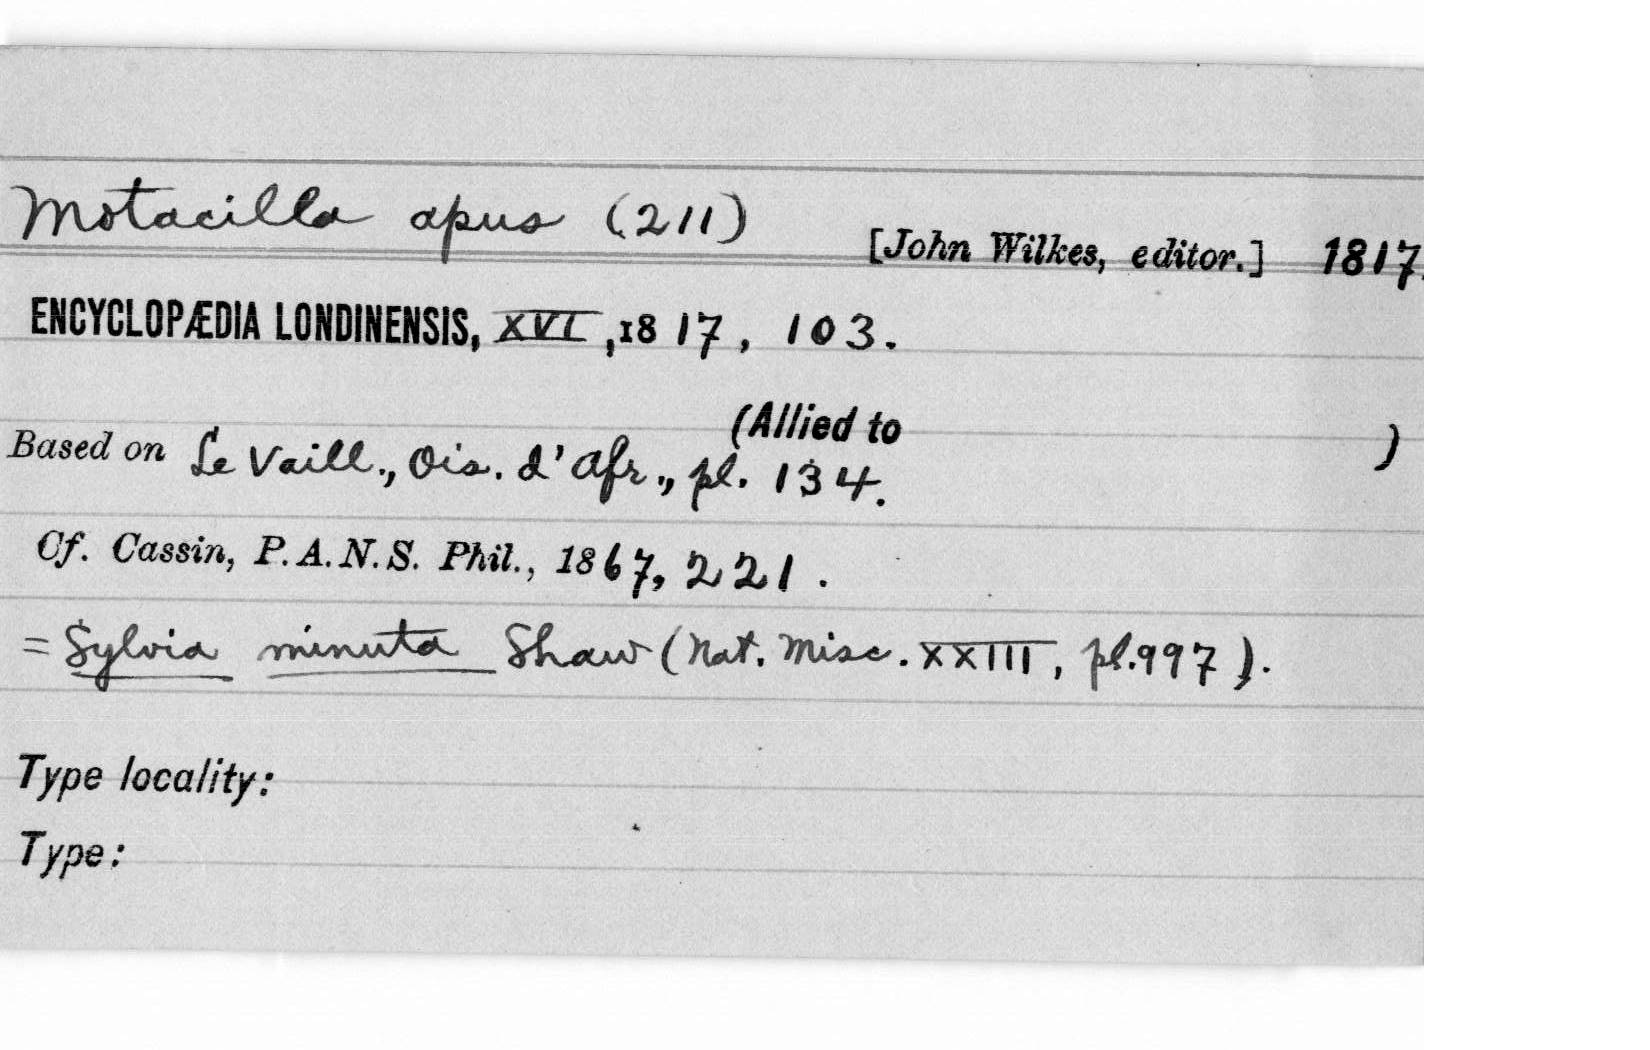 Motacilla apus (211)
[John Wilkes, editor.] 1817.
ENCYCLOPÆDIA LONDINENSIS, XVI, 1817, 103.
(Allied to )
Based on Le Vaill., Ois. d'Afr., pl. 134.
Cf. Cassin, P. A. N. S. Phil., 1867, 221.
= Sylvia minuta Shaw (Nat. Misc. XXIII, pl. 997).
Type locality:
Type: